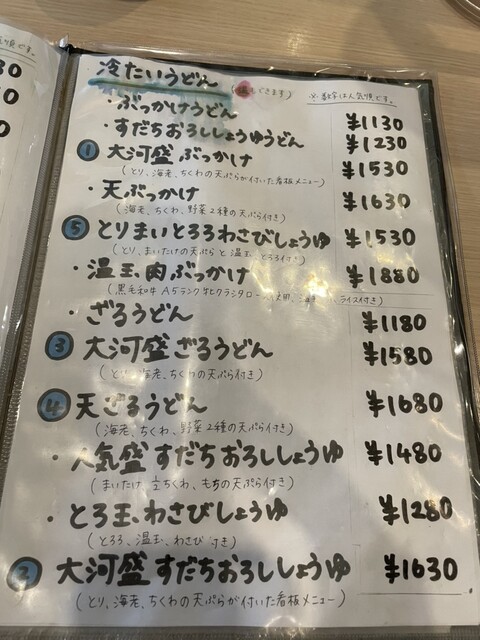 冷たいうどん (温もできます) ※数字は人気順です。
・ぶっかけうどん ¥1130
・すだちおろししょうゆうどん ¥1230
① 大河盛ぶっかけ ¥1530
(とり、海老、ちくわの天ぷらが付いた看板メニュー)
・天ぶっかけ ¥1630
(海老、ちくわ、野菜2種の天ぷら付き)
⑤ とりまいとろろわさびしょうゆ ¥1530
(とり、まいたけの天ぷらと温玉、とろろ付き)
・温玉肉ぶっかけ ¥1880
(黒毛和牛A5ランク ライス付き)
・ざるうどん ¥1180
③ 大河盛ざるうどん ¥1580
(とり、海老、ちくわの天ぷら付き)
④ 天ざるうどん ¥1680
(海老、ちくわ、野菜2種の天ぷら付き)
・人気盛すだちおろししょうゆ ¥1480
(まいたけ、立ちくわ、もちの天ぷら付き)
・とろ玉わさびしょうゆ ¥1280
(とろろ、温玉、わさび付き)
② 大河盛すだちおろししょうゆ ¥1630
(とり、海老、ちくわの天ぷらが付いた看板メニュー)